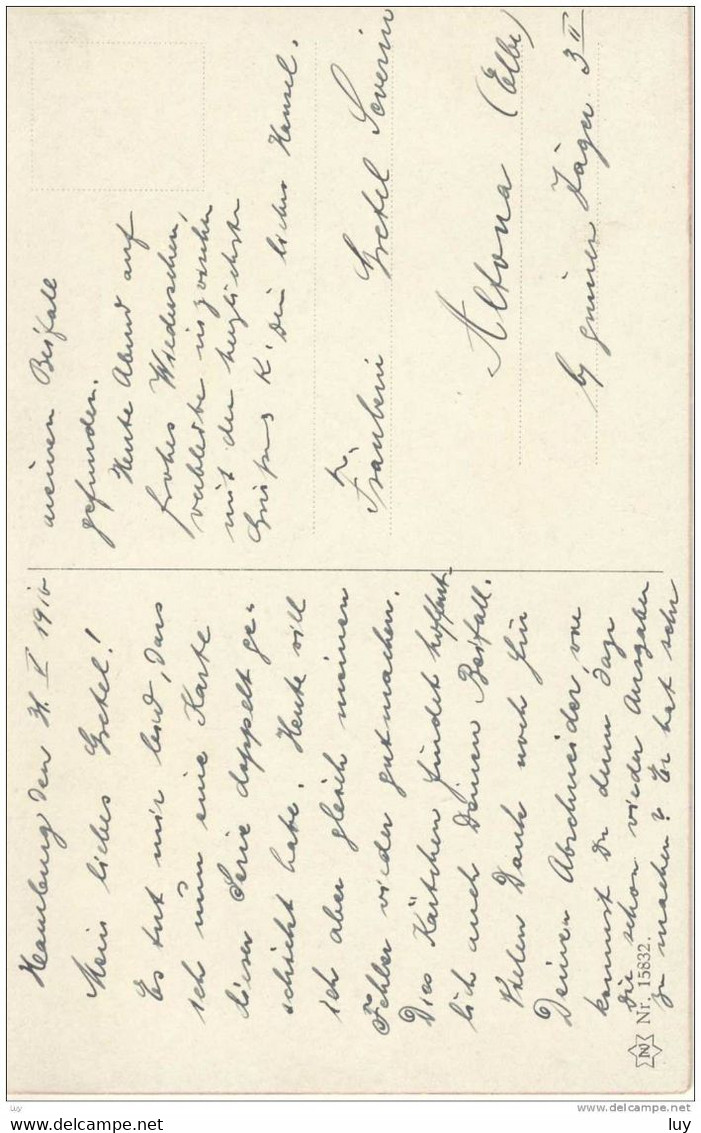 Hamburg den 31. V 1916
Mein liebes Gretel!
Es tut mir leid, dass
ich nun eine Karte
dieser Serie doppelt ge-
schickt habe. Heute will
ich aber gleich meinen
Fehler wieder gutmachen.
Dies Kärtchen findet hoffent-
lich auch Deinen Beifall.
Vielen Dank noch für
Deinen Abschneider, wie
kommst Du denn dazu
die schon wieder Ausgaben
zu machen? Er hat sehr
meinen Beifall
gefunden.
Heute Abend auf
frohes Wiedersehen,
verbleibe inzwischen
mit den herzlichsten
Grüßen K. Dein lieber Hansel.
Fräulein Gretel Severin
Altona (Elbe)
by grünen Jäger 3 II
N Nr. 15832.
luy
delcampe.net
luy
luy